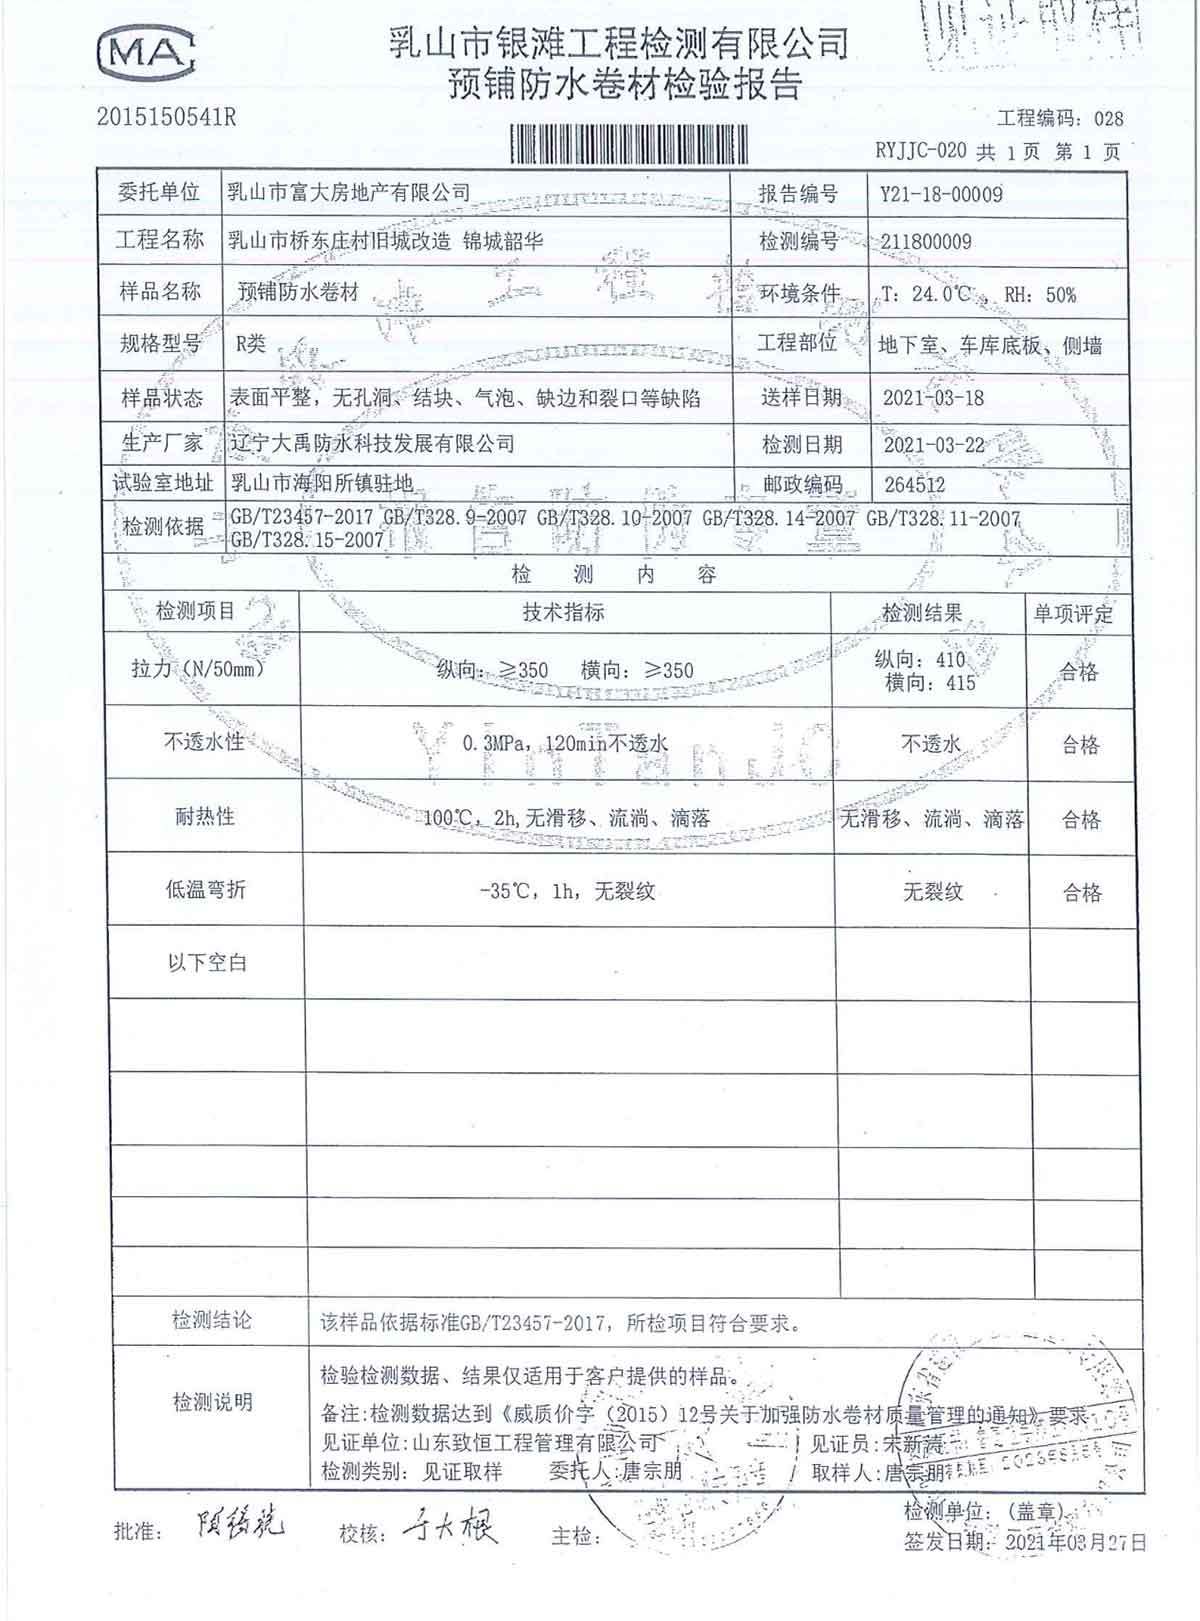 MA
乳山市银滩工程检测有限公司
预铺防水卷材检验报告
2015150541R
工程编码：028
RYJJC-020 共 1页 第 1 页
委托单位 乳山市富大房地产有限公司 报告编号 Y21-18-00009
工程名称 乳山市桥东庄村旧城改造 锦城韶华 检测编号 211800009
样品名称 预铺防水卷材 环境条件 T：24.0℃，RH：50%
规格型号 R类 工程部位 地下室、车库底板、侧墙
样品状态 表面平整，无孔洞、结块、气泡、缺边和裂口等缺陷 送样日期 2021-03-18
生产厂家 辽宁大禹防水科技发展有限公司 检测日期 2021-03-22
试验室地址 乳山市海阳所镇驻地 邮政编码 264512
检测依据 GB/T23457-2017 GB/T328.9-2007 GB/T328.10-2007 GB/T328.14-2007 GB/T328.11-2007
GB/T328.15-2007
检 测 内 容
检测项目 技术指标 检测结果 单项评定
拉力（N/50mm） 纵向：≥350 横向：≥350 纵向：410 横向：415 合格
不透水性 0.3MPa，120min不透水 不透水 合格
耐热性 100℃，2h,无滑移、流淌、滴落 无滑移、流淌、滴落 合格
低温弯折 -35℃，1h，无裂纹 无裂纹 合格
以下空白
YinTanJC
检测结论 该样品依据标准GB/T23457-2017，所检项目符合要求。
检测说明 检验检测数据、结果仅适用于客户提供的样品。
备注:检测数据达到《威质价字（2015）12号关于加强防水卷材质量管理的通知》要求
见证单位:山东致恒工程管理有限公司 见证员:宋新涛
检测类别：见证取样 委托人:唐宗朋 取样人:唐宗朋
检测单位：(盖章)
批准： 校核：于大根 主检：
签发日期：2021年03月27日